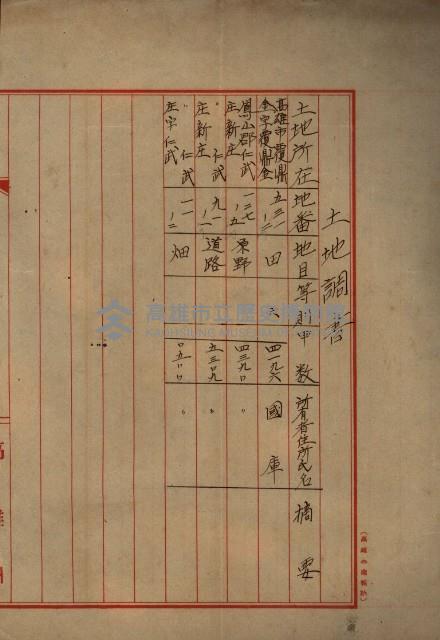 土地調書
土地所在 地番 地目 等則 甲数 所有者住所氏名 摘要
高雄市覆鼎金字覆鼎金 五三一ノ二 田 四一九六 國庫
鳳山郡仁武庄新庄 一三七ノ五 原野 四三九〇 〃
〃 仁武庄新庄 九一ノ一 道路 五三〇九 〃
〃 仁武庄字仁武 一一ノ二 畑 〇五〇〇 〃
高雄市立歷史博物館
KAOHSIUNG MUSEUM OF HISTORY
高雄州